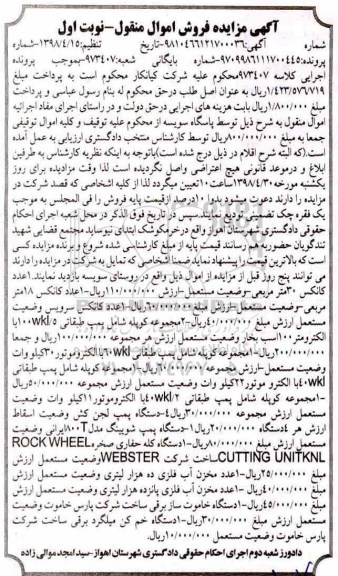 آگهی مزایده فروش اموال منقول-نوبت اول
شماره آگهی:۹۸۱۰۴۶۶۱۲۱۷۰۰۰۳۶-تاریخ تنظیم:۱۳۹۸/۴/۱۵-شماره
پرونده:۹۷۰۹۹۸۶۱۱۱۷۰۰۴۴۵-شماره بایگانی شعبه:۹۷۳۴۰۷-بموجب پرونده
اجرایی کلاسه ۹۷۳۴۰۷محکوم علیه شرکت کیانکار محکوم است به پرداخت مبلغ
۱/۴۲۳/۵۷۶/۷۱۹ریال به عنوان اصل طلب درحق محکوم له بنام رسول عباسی و پرداخت
۱/۸۰۰/۰۰۰ریال بابت هزینه های اجرایی درحق دولت و در راستای اجرای مفاد اجرائیه
اموال منقول به شرح ذیل توسط پاسگاه سویسه از محکوم علیه توقیف و کلیه اموال توقیفی
جمعا به مبلغ ۸۰۰/۰۰۰/۰۰۰ریال توسط کارشناس منتخب دادگستری ارزیابی به عمل آمده
است.(که البته شرح اقلام در ذیل درج شده است)باتوجه به اینکه نظریه کارشناس به طرفین
ابلاغ و درموعد قانونی هیچ اعتراضی واصل نگردیده است لذا وقت مزایده برای روز
یکشنبه مورخه۱۳۹۸/۴/۳۰ساعت۱۰تعیین میگردد لذا از کلیه اشخاصی که قصد شرکت در
مزایده را دارند دعوت میشود بدوا ۱۰درصد ازقیمت پایه فروش را فی المجلس به موجب
یک فقره چک تضمینی تودیع نمایند.سپس در تاریخ فوق الذکر در محل شعبه اجرای احکام
حقوقی دادگستری شهرستان اهواز واقع درخرمکوشک ابتدای نیوساید مجتمع قضایی شهید
تندگویان حضور بهم رسانند قیمت پایه از مبلغ کارشناسی شده شروع و برنده مزایده کسی
است که بالاترین قیمت را پیشنهاد نماید ضمنا اشخاصی که تمایل به شرکت در مزایده را دارند
می توانند پنج روز قبل از مزایده از اموال ذیل واقع در روستای سویسه بازدید نمایند.۱عدد
کانکس ۳۰متر مربعی-وضعیت معمولی-ارزش ۱۱۰/۰۰۰/۰۰۰ریال-۱عدد کانکس ۱۸متر
مربعی-وضعیت معمولی-ارزش مبلغ ۶۰/۰۰۰/۰۰۰ریال-۱عدد کانکس سرویس وضعیت
مستعمل ارزش مبلغ ۴۰/۰۰۰/۰۰۰ریال-۲مجموعه کوپله شامل پمپ طبقاتی wkl۱۰۰/۵با
الکترومتر ۱۰۰اسب بخار وضعیت مستعمل ارزش هر مجموعه ۱۰۰/۰۰۰/۰۰۰ریال و جمعا
۲۰۰/۰۰۰/۰۰۰ریال-۱مجموعه کوپله شامل پمپ طبقاتی wkl۶۰با الکتروموتور ۳۰کیلو وات
وضعیت مستعمل-ارزش مجموعه ۶۰/۰۰۰/۰۰۰ریال-۱مجموعه کوپله شامل پمپ طبقاتی
wkl۴۰با الکترو موتور۲۲کیلو وات وضعیت مستعمل ارزش مجموعه ۵۰/۰۰۰/۰۰۰ریال
-۱مجموعه کوپله شامل پمپ طبقاتی wkl۴۰/۲با الکتروموتور۱۱کیلو وات وضعیت
مستعمل ارزش مجموعه ۳۰/۰۰۰/۰۰۰ریال-۴دستگاه پمپ لجن کش وضعیت اسقاط
ارزش هر ۴دستگاه ۲۰/۰۰۰/۰۰۰ریال-۱دستگاه پمپ شوینگ مدلT۸۰۰ایرانی وضعیت
مستعمل ارزش مبلغ ۸۰/۰۰۰/۰۰۰ریال-۱دستگاه کله حفاری صخرهROCK WHEEL
CUTTING UNITKNLساخت شرکت WEBSTERوضعیت مستعمل ارزش
مبلغ ۲۵/۰۰۰/۰۰۰ریال-۱عدد مخزن آب فلزی ده هزار لیتری وضعیت مستعمل ارزش
مبلغ ۴۰/۰۰۰/۰۰۰ریال-۱عدد مخزن آب فلزی پانزده هزار لیتری وضعیت مستعمل ارزش
مبلغ ۴۵/۰۰۰/۰۰۰ریال-۱دستگاه خاموت ساز برقی ساخت شرکت پارس خاموت وضعیت
مستعمل ارزش مبلغ ۳۰/۰۰۰/۰۰۰ریال-۱دستگاه خم کن میلگرد برقی ساخت شرکت
پارس خاموت وضعیت مستعمل ارزش ۱۰/۰۰۰/۰۰۰ریال.
دادورز شعبه دوم اجرای احکام حقوقی دادگستری شهرستان اهواز-سید امجد موالی زاده